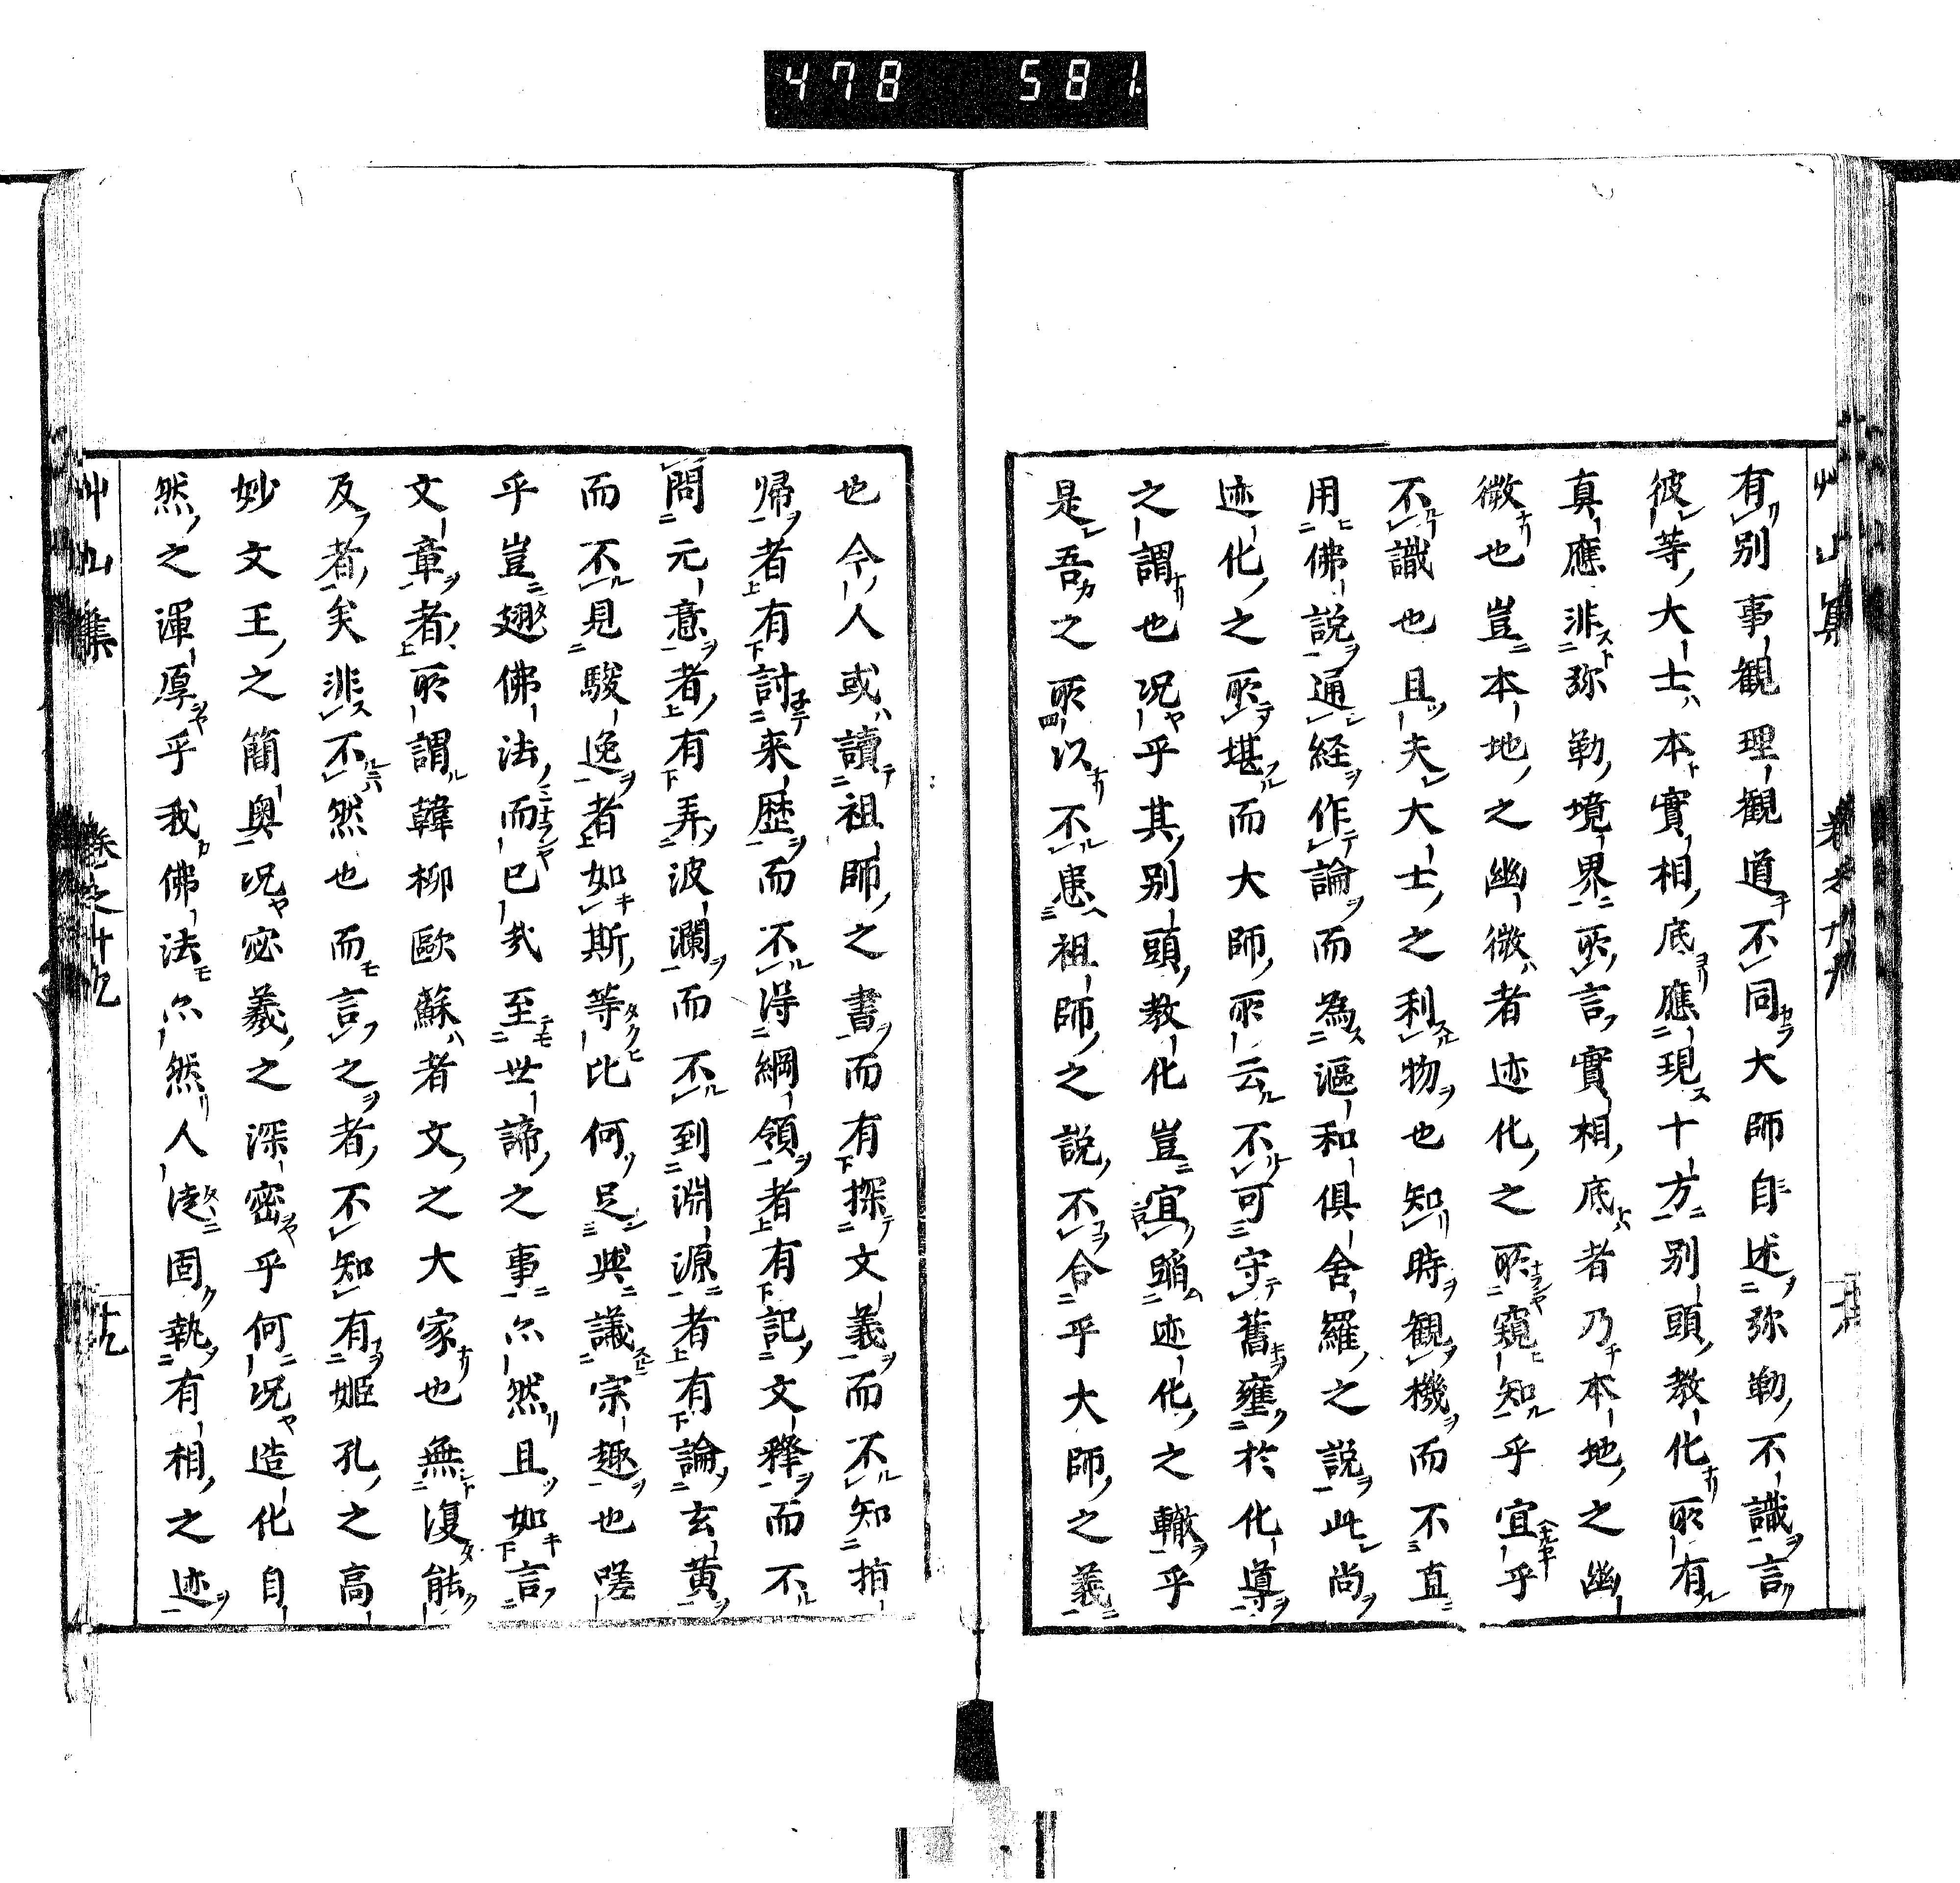 478 581
有別事觀理觀道不同大師自述弥勒不識言
彼等大士本實相底應現十方別頭教化所有
真應非弥勒境界所言實相底者乃本地之幽
微也豈本地之幽微者迹化之所窺知乎宜乎
不識也且夫大士之利物也知時觀機而不直
用佛說通経作論而為漚和俱舍羅之說此尚
迹化之所堪而大師所云不可守舊壅於化導
之謂也况乎其別頭教化豈宜蹈迹化之轍乎
是吾之所以不患祖師之說不合乎大師之義
也今人或讀祖師之書而有探文義而不知指
帰者有討来歷而不得綱領者有記文釋而不
問元意者有弄波瀾而不到淵源者有論玄黄
而不見駿逸者如斯等比何足與議宗趣也嗟
乎豈翅佛法而已哉至世諦之事尒然且如言
文章者所謂韓柳歐蘇者文之大家也無復能
及者矣非不然也而言之者不知有姬孔之高
妙文王之簡奥况宓羲之深密乎何况造化自
然之渾厚乎我佛法尒然人徒固執有相之迹
艸山集 卷之十九 十九